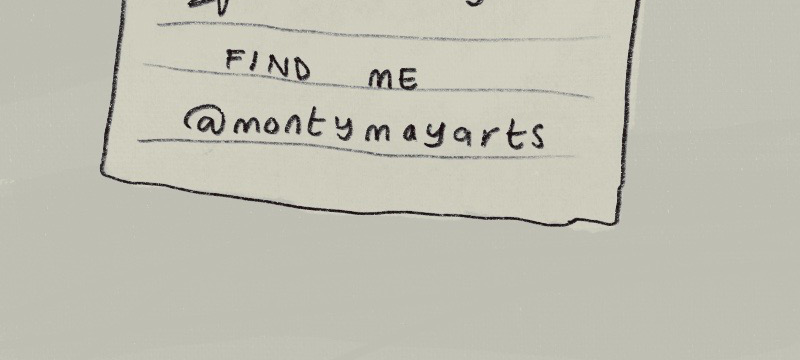 FIND ME
@montymayarts